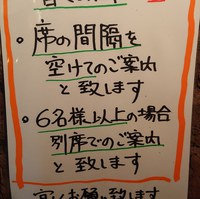 ・席の間隔を
空けてのご案内
と致します
・6名様以上の場合
別席でのご案内
と致します
宜しくお願い致します